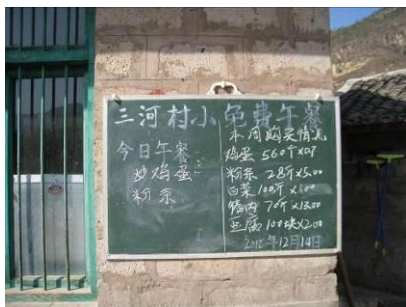 三河村小免费午餐
今日午餐
炒鸡蛋
粉条
本周购买情况
鸡蛋 560个×0.7
粉条 28斤×5.00
白菜 100斤×1.00
猪肉 70斤×13.00
豆腐 100块×2.00
2012年12月14日